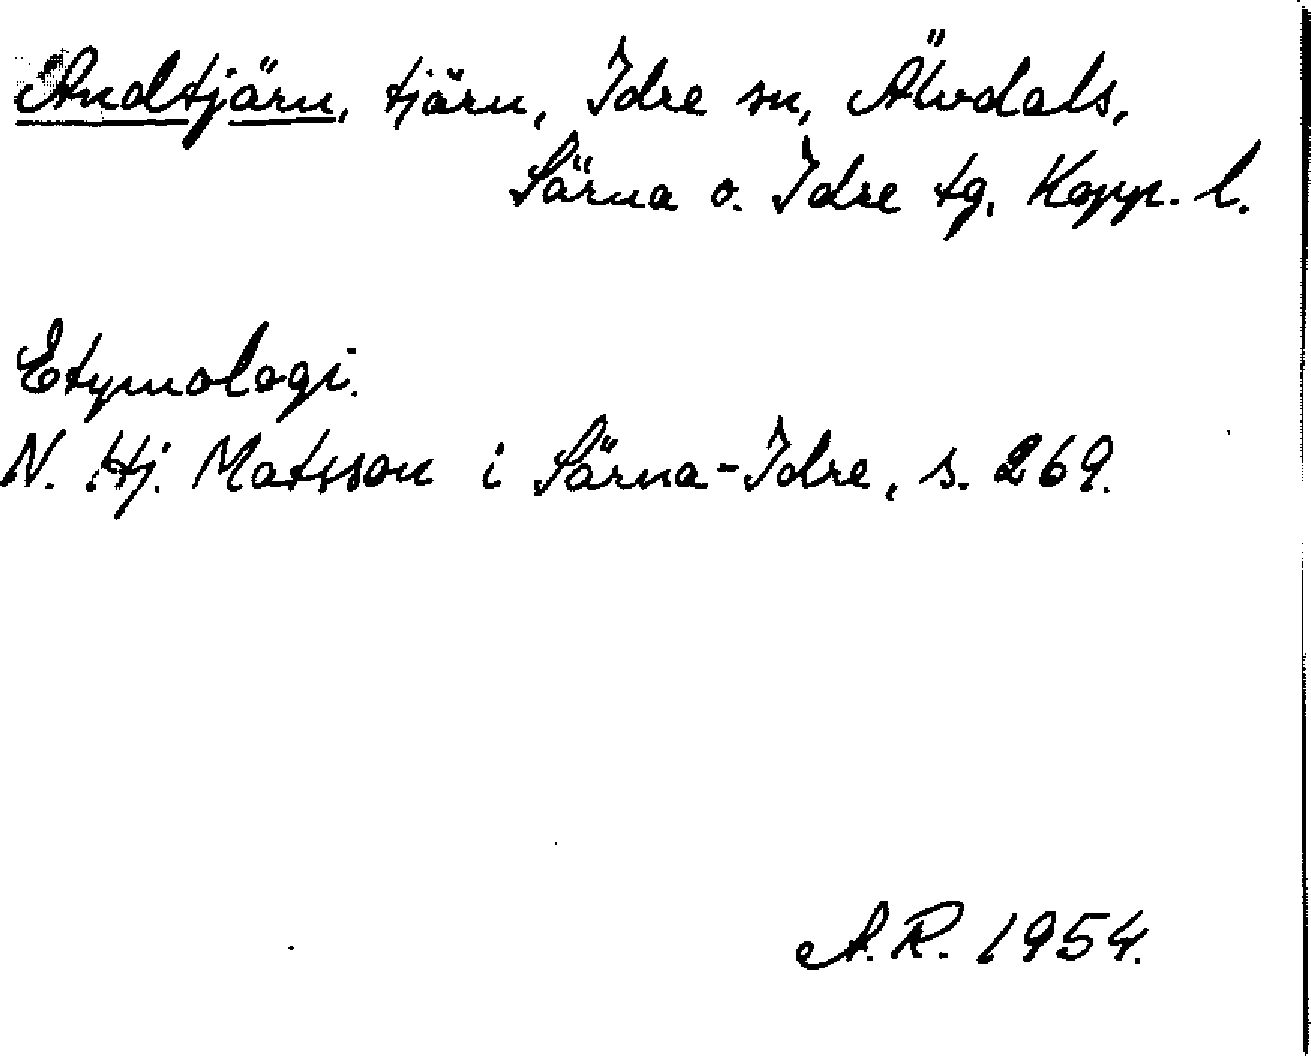 Andtjärn, tjärn, Idre sn, Älvdals,
Särna o. Idre tg, Kopp. l.
Etymologi.
N. Hj. Matsson i Särna-Idre, s. 269.
A.R. 1954.